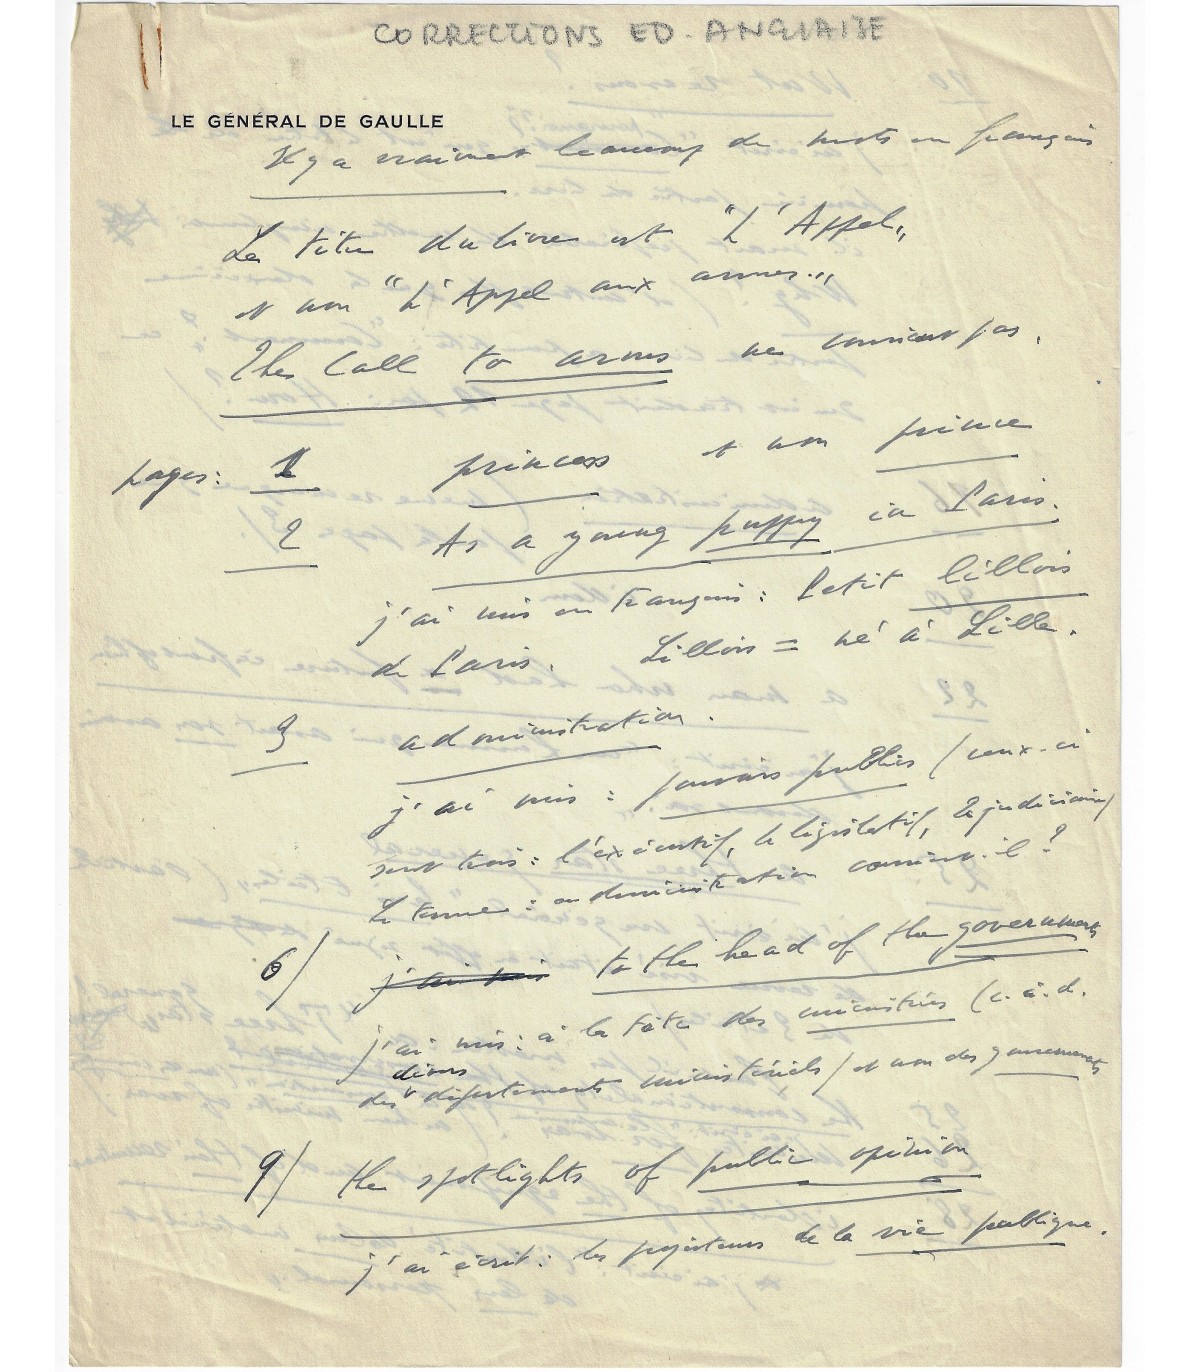 CORRECTIONS ED. ANGLAISE
LE GÉNÉRAL DE GAULLE
Il y a vraiment beaucoup de mots en français
Le titre du livre est "L'Appel"
et non "L'Appel aux armes."
The Call to arms ne convient pas.
pages: 1 princess et non prince
2 As a young puppy in Paris.
j'ai mis en français: Petit Lillois
de Paris. Lillois = né à Lille.
3 administration.
j'ai mis: pouvoirs publics (ceux-ci
sont trois: l'exécutif, le législatif, le judiciaire)
Le terme: administration convient-il?
6) j'ai mis to the head of the governments
j'ai mis: à la tête des ministères (c.à.d.
divers
des départements ministériels) et non des gouvernements
9) the spotlights of public opinion
j'ai écrit: les projecteurs de la vie publique.